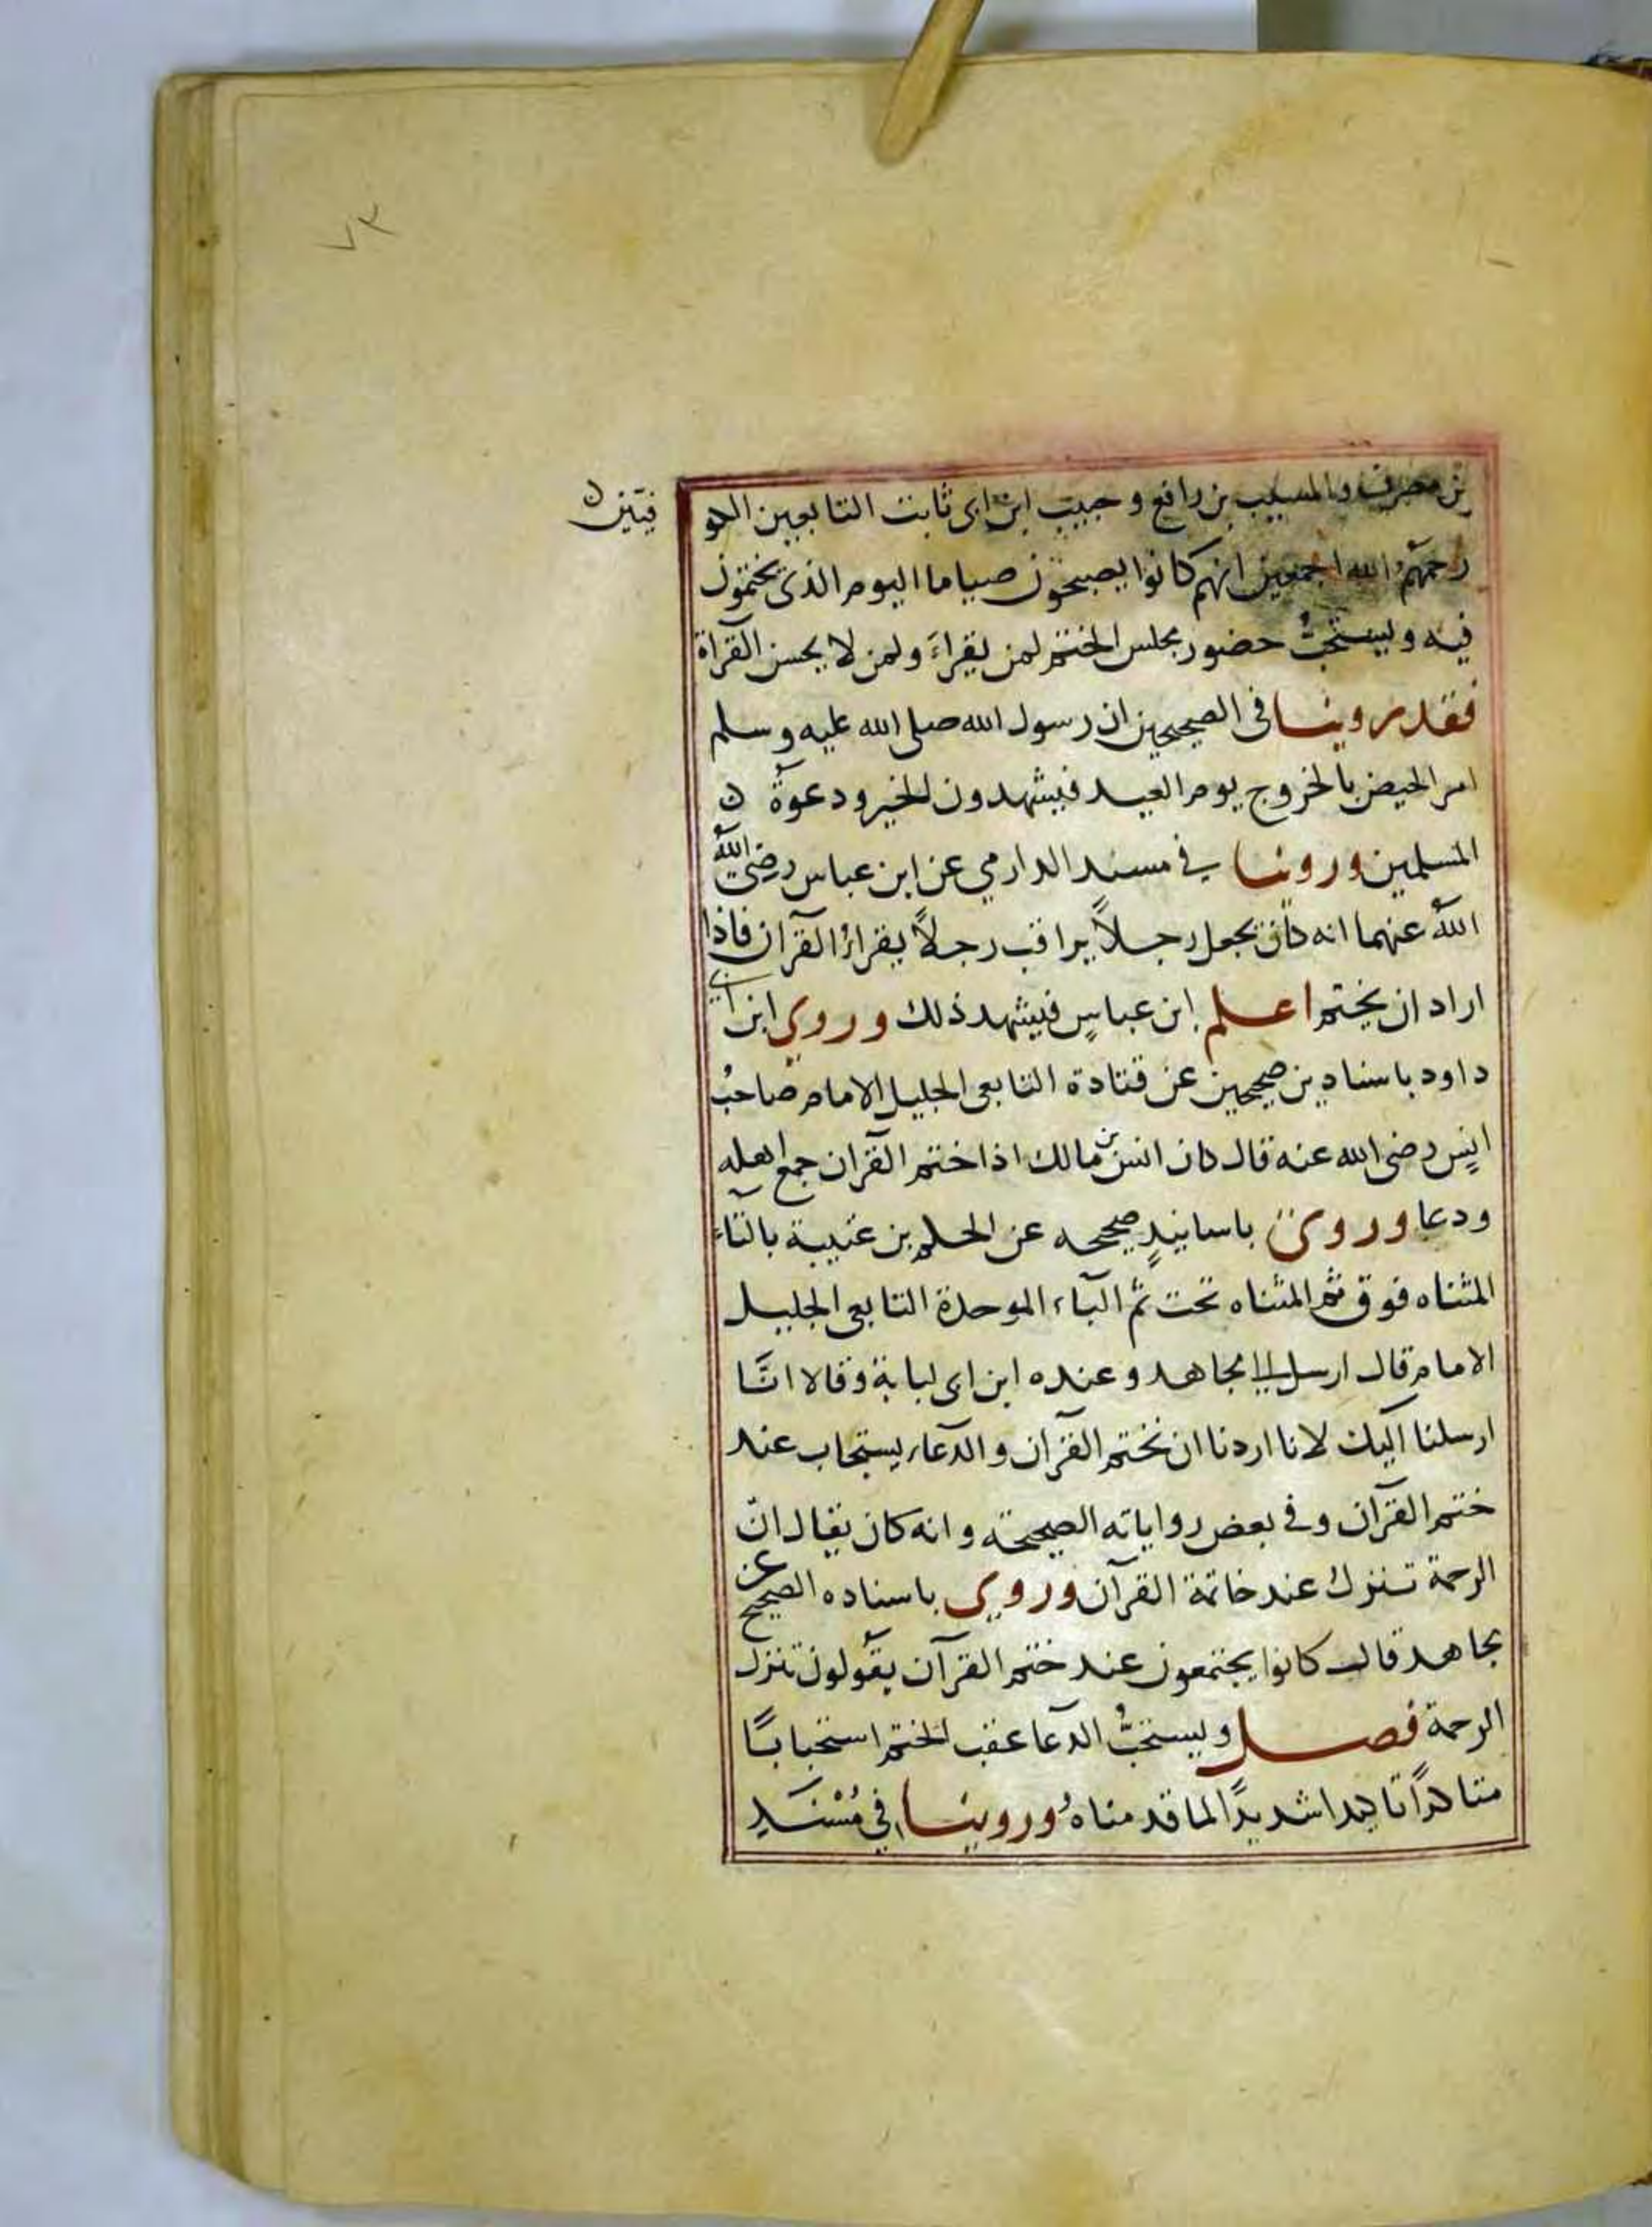 ٧٣
بن مصرف والمسيب بن رافع وحبيب ابن ابى ثابت التابعين الكو
فيين ن
رحمهم الله اجمعين انهم كانوا يصبحون صياما اليوم الذى يختمون
فيه ويستحبُّ حضور مجلس الختم لمن يقراءَ ولمن لا يحسن القراة
فقد روينا فى الصحيحين ان رسول الله صلى الله عليه وسلم
امر الحيض بالخروج يوم العيد فيشهدون الخير ودعوةَ ن
المسلمين وروينا في مسند الدارمي عن ابن عباس رضى الله
اللهُ عنهما انه كان يجعل رجلاً يراقب رجلاً يقراءُ القرآن فاذا
اراد ان يختم اعلم ابن عباسٍ فيشهد ذلك وروى ابن ابي
داود باسنادين صحيحين عن قتادة التابعى الجليل الامام صاحبُ
انسٍ رضى الله عنه قال كان انس بن مالك اذا ختم القرآن جمع اهله
ودعا وروى باسانيدٍ صحيحه عن الحكم بن عتيبة بالتاء
المثناه فوق ثم المثناه تحت ثم البآء الموحدة التابعى الجليل
الامام قال ارسل الىّ مجاهد وعنده ابن ابى لبابة وقالا انَّا
ارسلنا اليك لانا اردنا ان نختم القرآن والدعاء يستجاب عند
ختم القرآن وفي بعض رواياته الصحيحة وانه كان يقال انّ
الرحمة تنزل عند خاتمة القرآن وروى باسناده الصحيح عن
مجاهد قال كانوا يجتمعون عند ختم القرآن يقولون تنزل
الرحمة فصل ويستحبُّ الدعا عقب الختم استحبابًا
متاكدًا تاكيدا شديدًا لما قدمناهُ وروينا في مُسْنَدِ